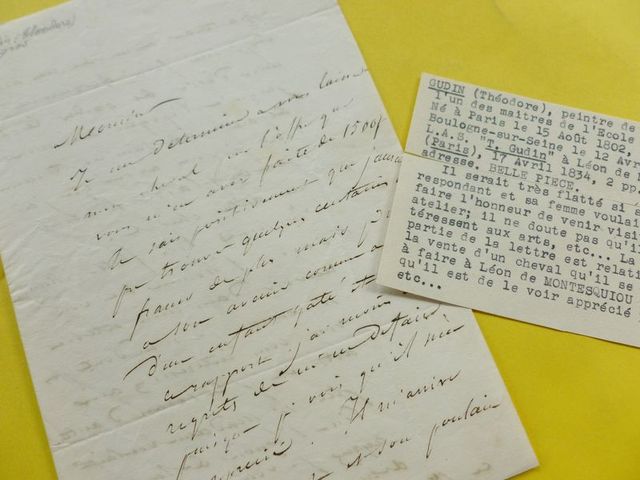 Monsieur
Je me determine à vous laisser
mon cheval pour l'offre que
vous m'en avez faite de 1500f
Je sais positivement que j'aurais
pu trouver quelques centaines de
francs de plus mais
a son avenir comme a
d'un enfant gaté
ce rapport j'ai moins
regrets de m'en defaire
puisque je vois qu'il
apprecié. Il m'arrive
et son poulain
GUDIN (Théodore), peintre de
l'un des maitres de l'Ecole
Né à Paris le 15 Août 1802,
Boulogne-sur-Seine le 12 Avr
L.A.S. "T. Gudin" à Léon de
(Paris), 17 Avril 1834, 2 pp.
adresse. BELLE PIECE.
Il serait très flatté si
respondant et sa femme voulai
faire l'honneur de venir visi
atelier; il ne doute pas qu'i
téressent aux arts, etc... La
partie de la lettre est relati
la vente d'un cheval qu'il se
à faire à Léon de MONTESQUIOU
qu'il est de le voir apprécié
etc...